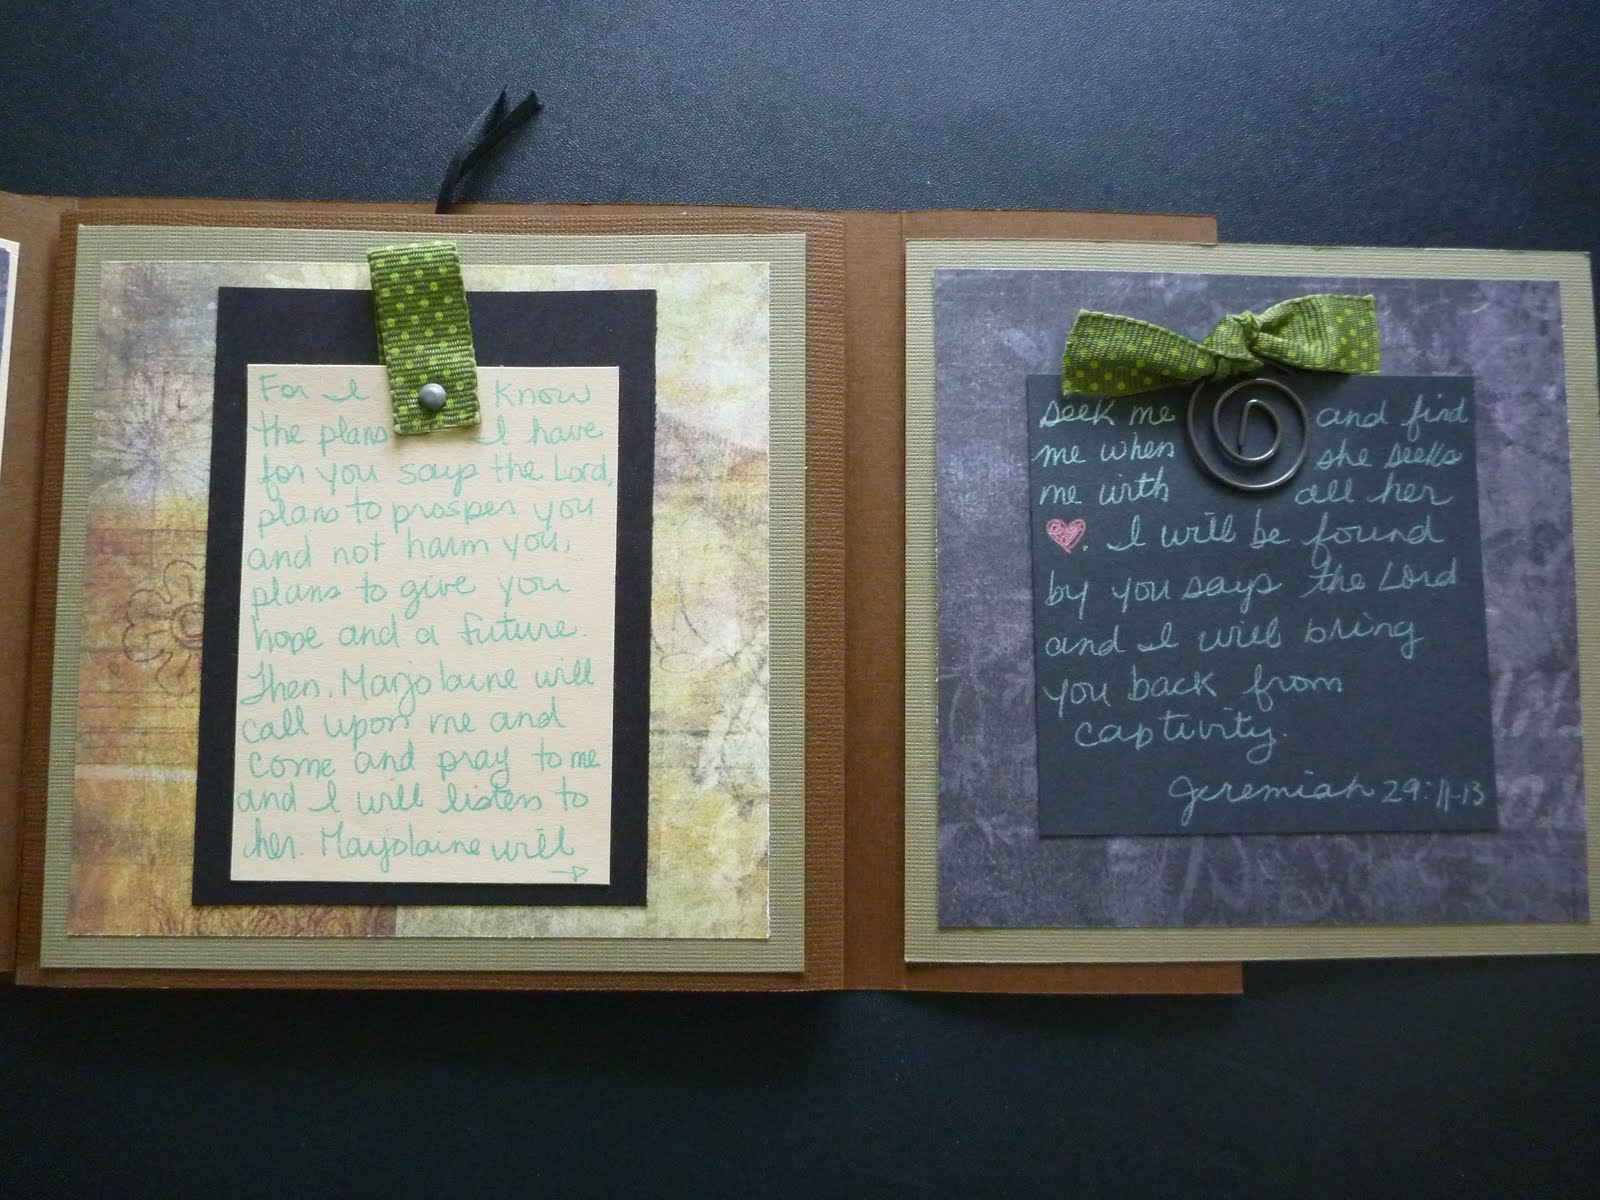 For I know
the plans I have
for you says the Lord,
plans to prosper you
and not harm you,
plans to give you
hope and a future.
Then, Marjolaine will
call upon me and
come and pray to me
and I will listen to
her. Marjolaine will
seek me and find
me when she seeks
me with all her
. I will be found
by you says the Lord
and I will bring
you back from
captivity.
Jeremiah 29:11-13